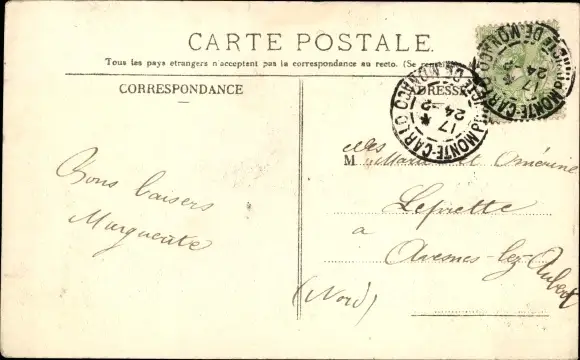 CARTE POSTALE.
Tous les pays etrangers n'acceptent pas la correspondance au recto. (Se
CORRESPONDANCE
MONTE-CARLO
PRINCIPAUTÉ DE MONACO
17
24-2
MONTE-CARLO
DE MONACO
17
24
Bons baisers
Marguerite
M elles Marie et Omérine
Leprette
a
Avesnes-lez-Aubert
(Nord)